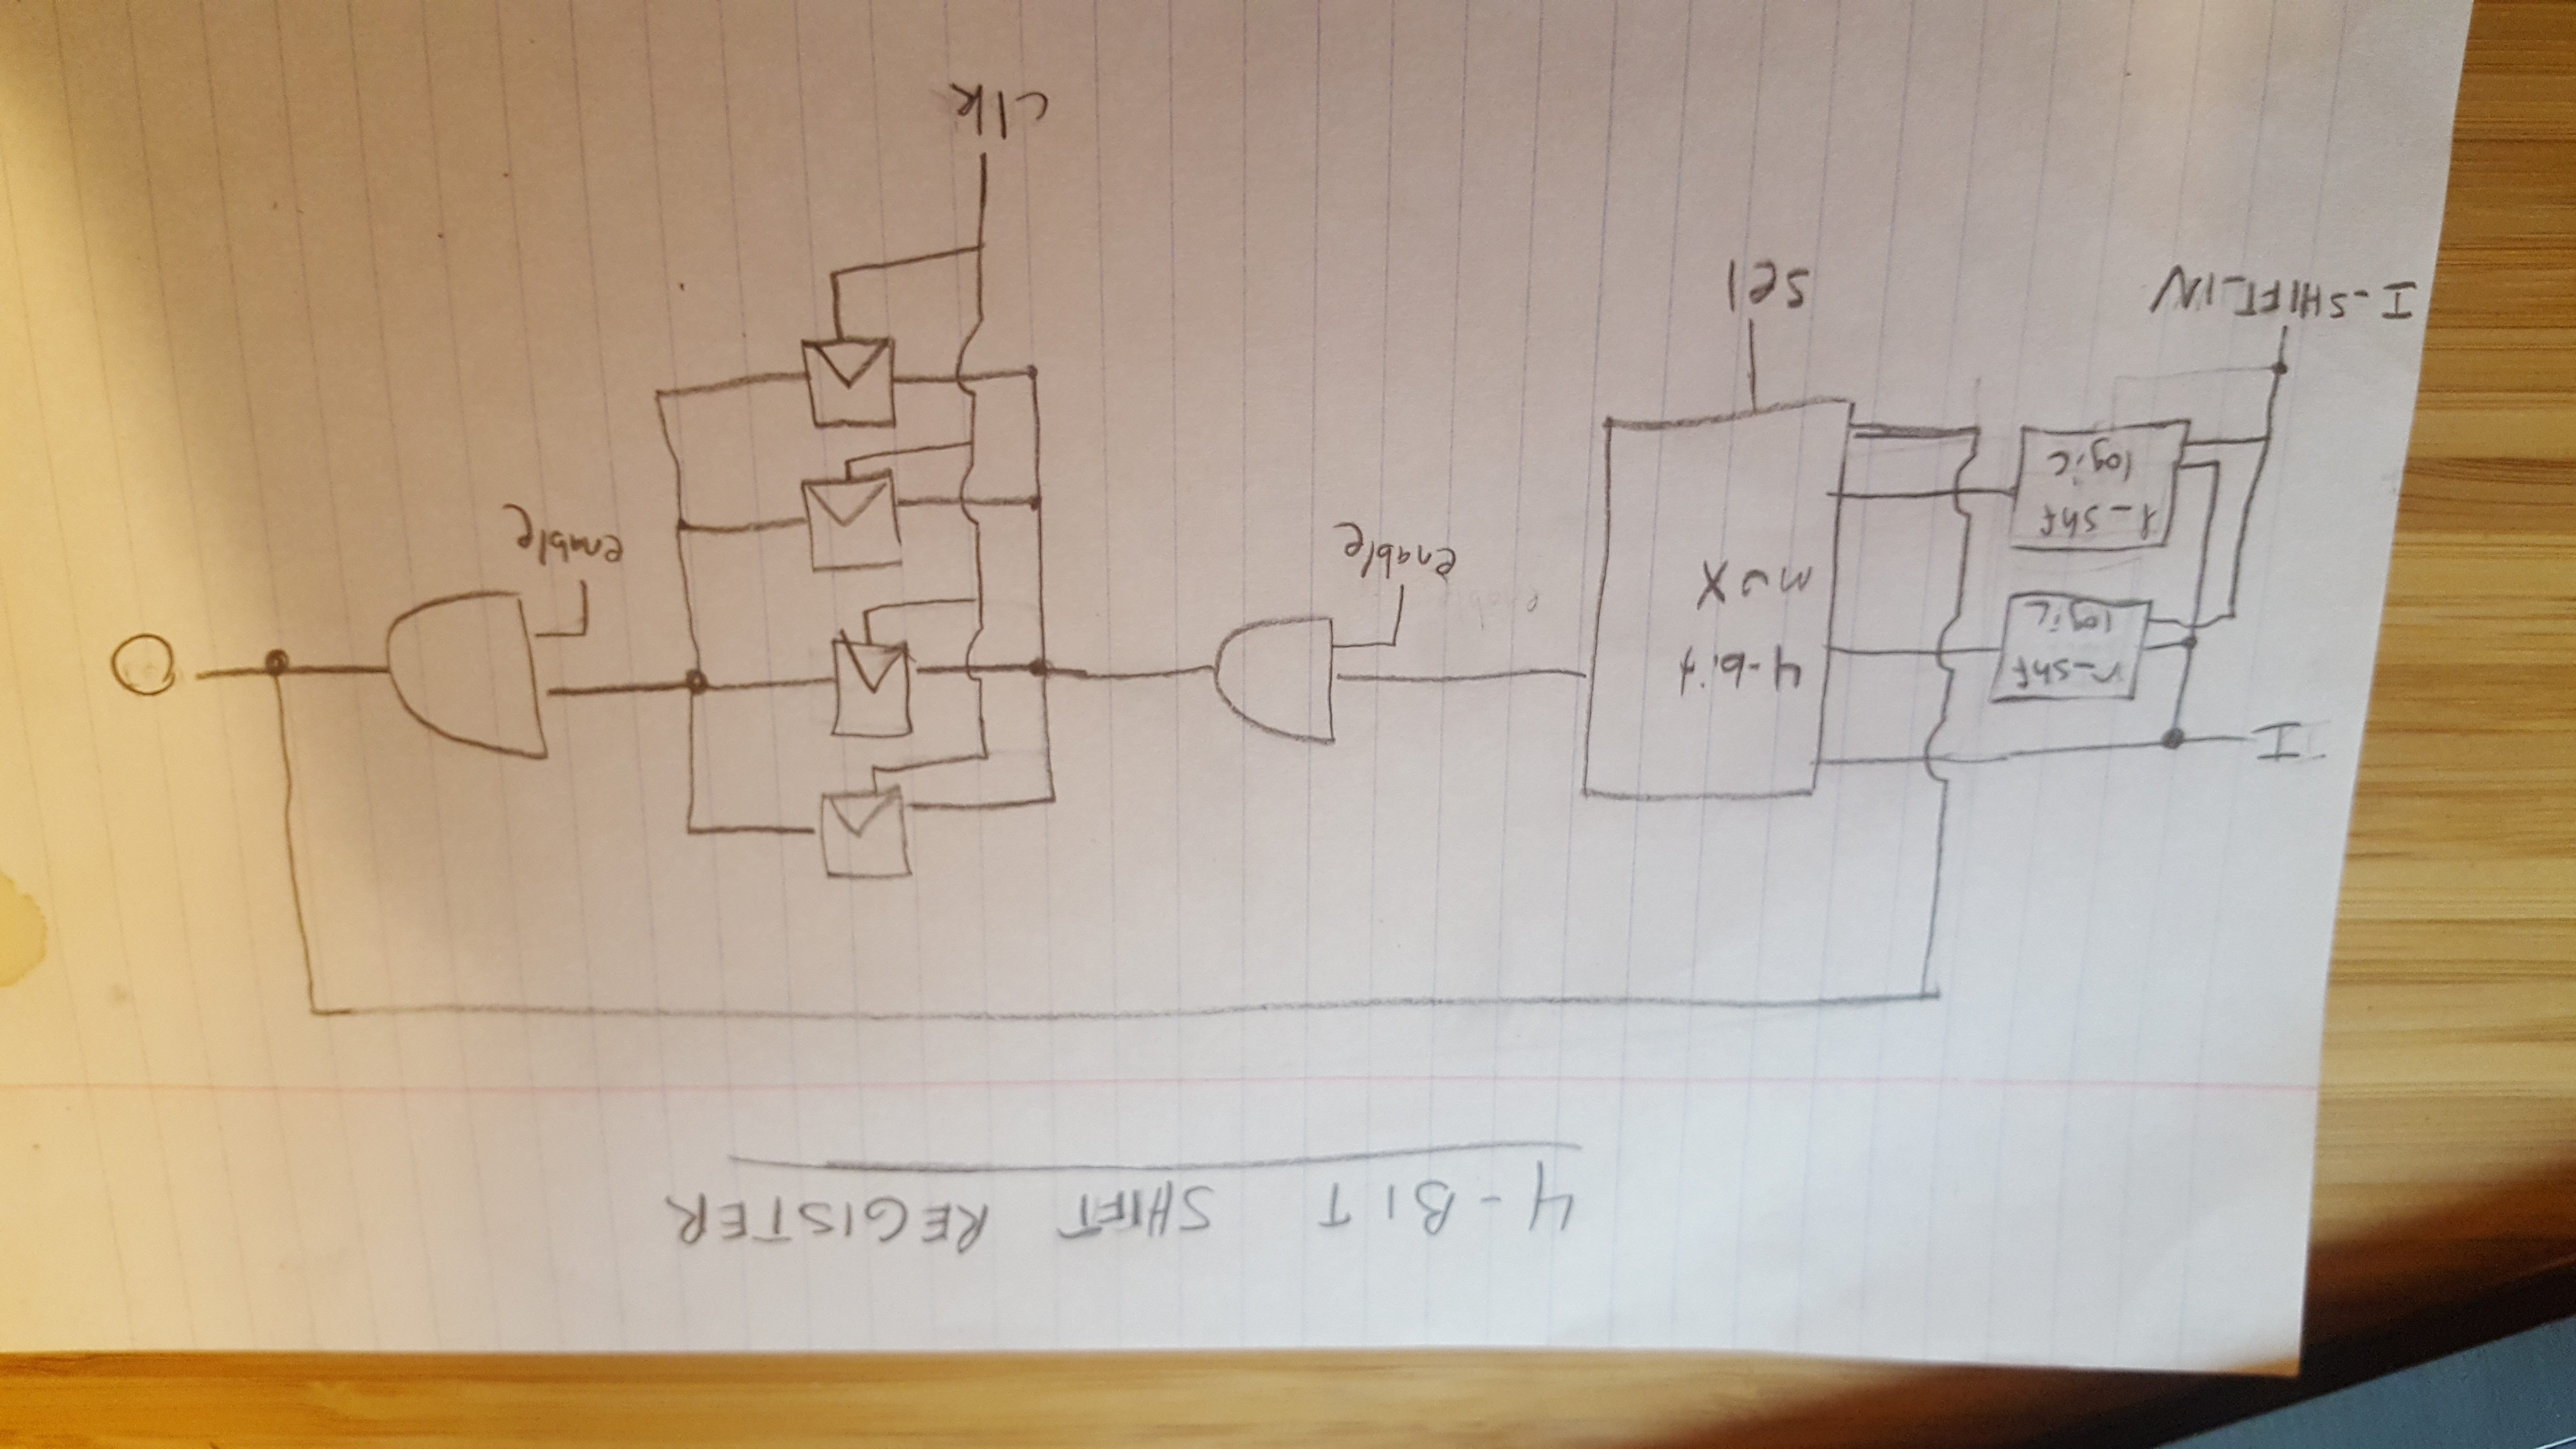 4-BIT SHIFT REGISTER
I
r_shf
logic
l_shf
logic
I_SHIFT_IN
4-bit
mux
sel
enable
clk
enable
O